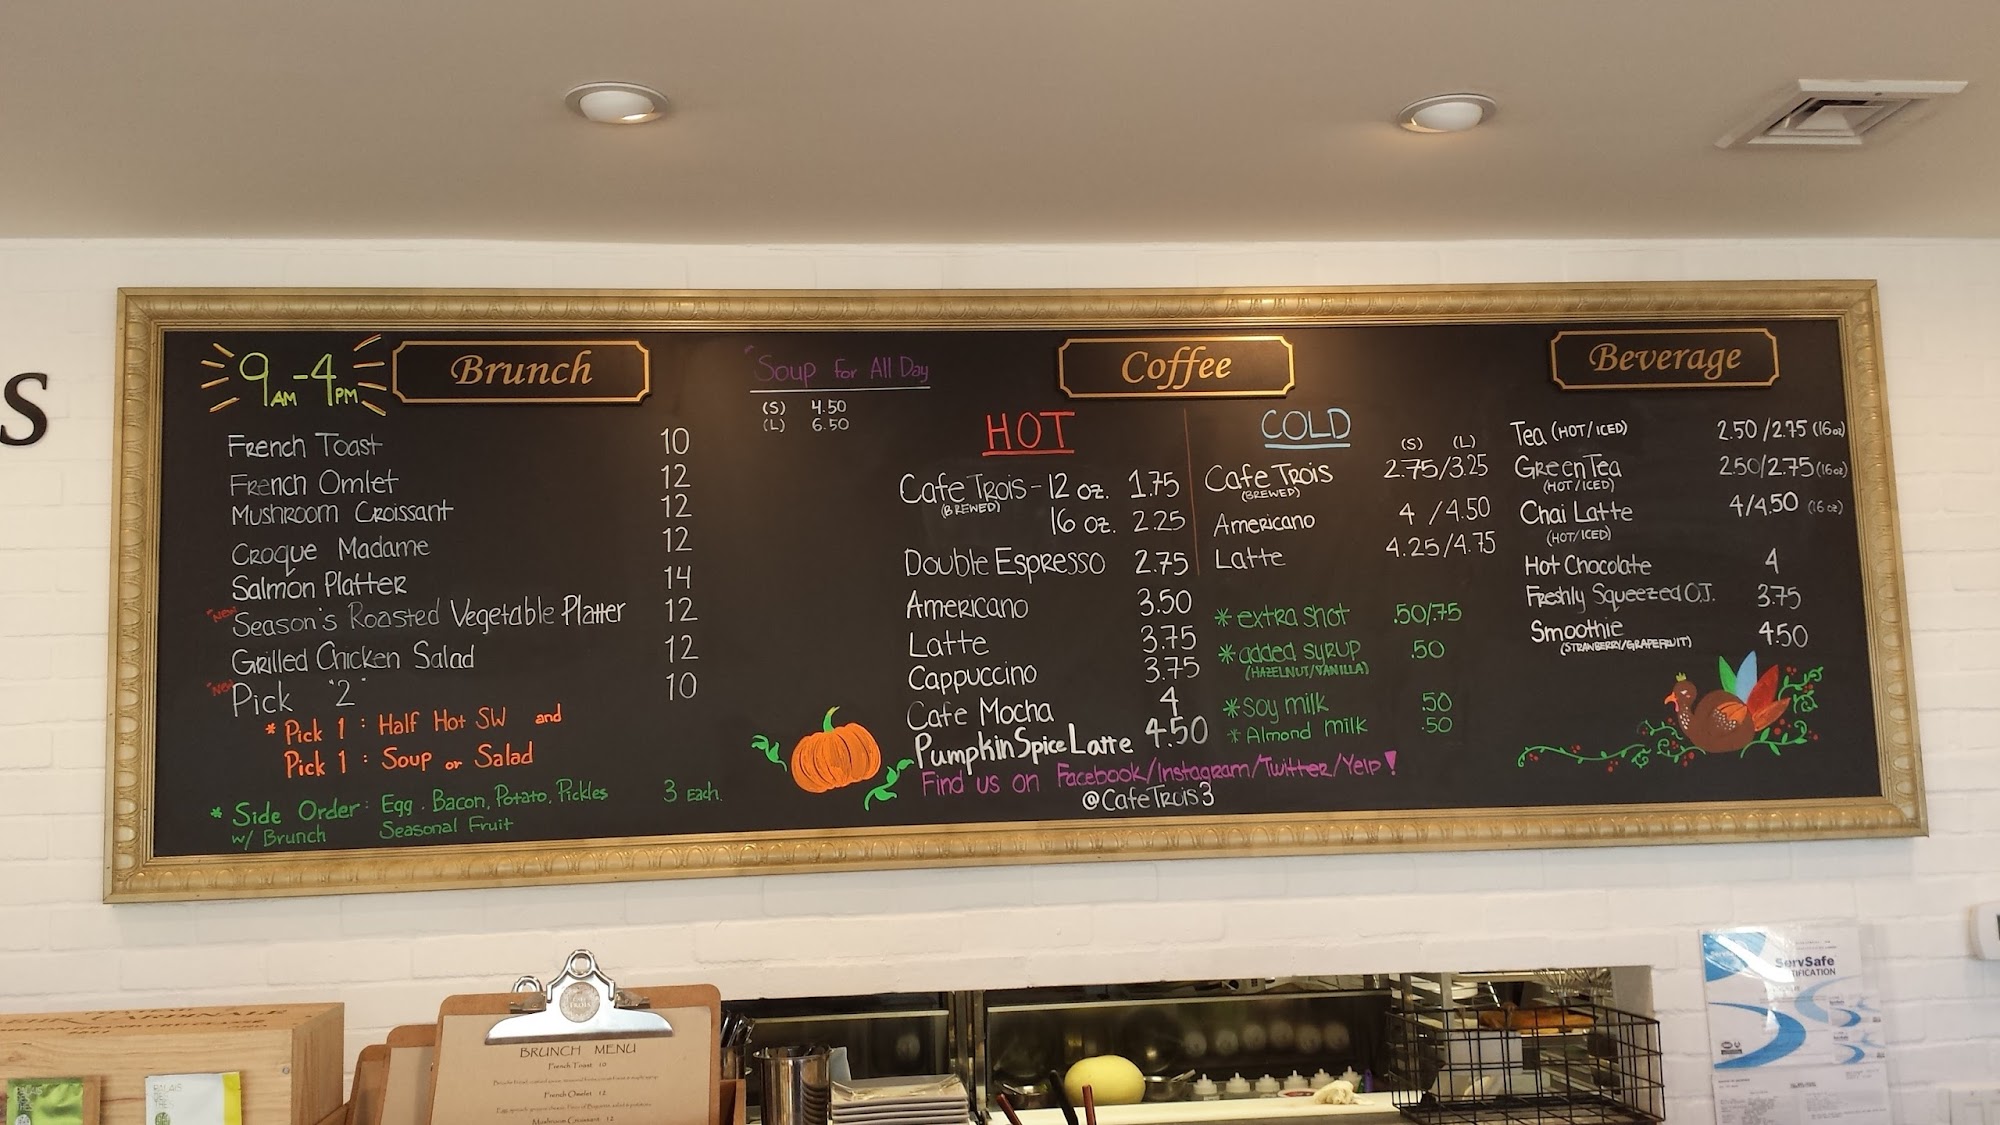 s
9AM-4PM
Brunch
French Toast 10
French Omlet 12
Mushroom Croissant 12
Croque Madame 12
Salmon Platter 14
*NEW Season's Roasted Vegetable Platter 12
Grilled Chicken Salad 12
*NEW Pick "2" 10
* Pick 1 : Half Hot SW and
Pick 1 : Soup or Salad
* Side Order : Egg . Bacon, Potato, Pickles 3 Each.
w/ Brunch Seasonal Fruit
Soup for All Day
(S) 4.50
(L) 6.50
Coffee
HOT
Cafe Trois - 12 oz. 1.75
(BREWED)
16 oz. 2.25
Double Espresso 2.75
Americano 3.50
Latte 3.75
Cappuccino 3.75
Cafe Mocha 4
Pumpkin Spice Latte 4.50
COLD
(S) (L)
Cafe Trois 2.75/3.25
(BREWED)
Americano 4 /4.50
Latte 4.25/4.75
* extra shot .50/.75
* added syrup .50
(HAZELNUT/VANILLA)
* Soy milk .50
* Almond milk .50
Find us on Facebook/Instagram/Twitter/Yelp!
@CafeTrois3
Beverage
Tea (HOT/ICED) 2.50/2.75 (16oz)
Green Tea 2.50/2.75 (16oz)
(HOT/ICED)
Chai Latte 4/4.50 (16oz)
(HOT/ICED)
Hot Chocolate 4
Freshly Squeezed O.J. 3.75
Smoothie 4.50
(STRAWBERRY/GRAPEFRUIT)
BRUNCH MENU
French Toast 10
French Omelet 12
Mushroom Croissant 12
ServSafe
CERTIFICATION
PALAIS